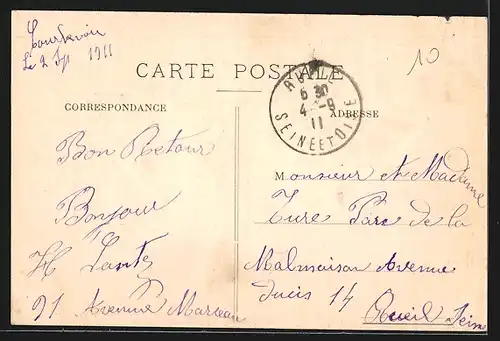 Courbevoie
Le 2 Sep 1911
10
CARTE POSTALE
6 30
4 -9
11
SEINE ET OISE
CORRESPONDANCE
ADRESSE
Bon Retour
Bonjour
H
91 Avenue Marceau
Monsieur et Madame
Parc de la
Malmaison Avenue
14 Rueil Seine